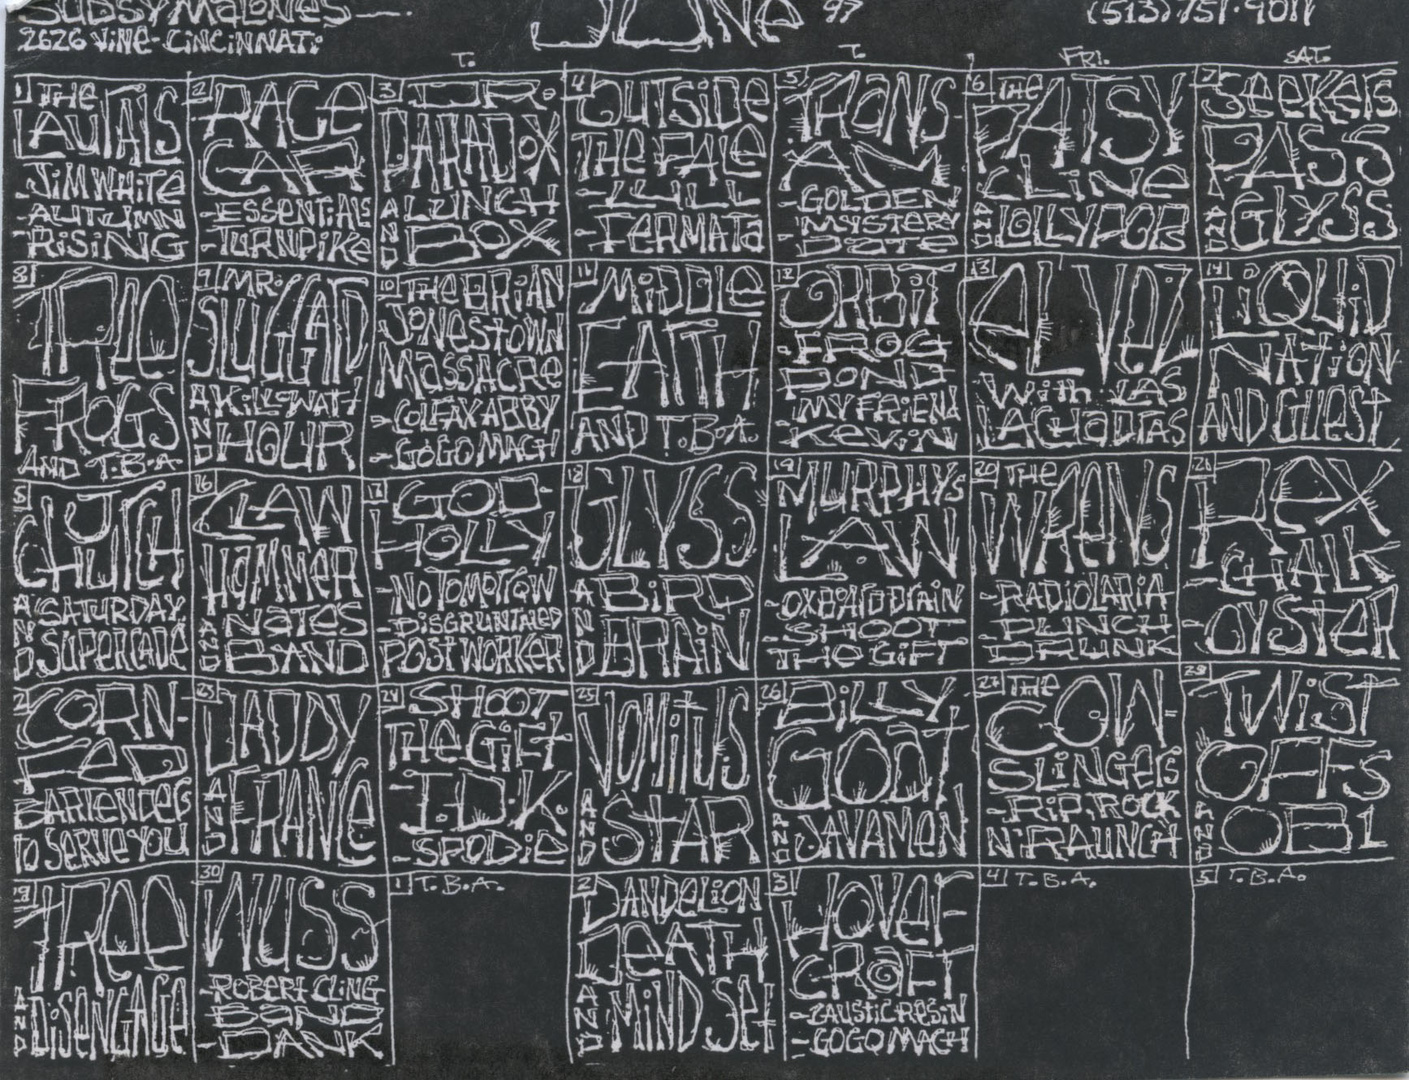 SUDSY MALONES
JUNE 97
(513) 751-9011
2626 VINE-CINCINNATI
T. T. FRI. SAT.
1 THE
LAUTALS
JIM WHITE
-AUTUMN
-RISING
2 RAGE
CAR
-ESSENTIALS
-TURNPIKE
3 DR.
PARADOX
AND LUNCH
BOX
4 OUTSIDE
THE PALE
-LULL
-FERMATA
5 TRANS
AM
-GOLDEN
MYSTERY
DATE
6 THE
PATSY
CLINE
AND LOLLYPOPS
7 SEEKERS
PASS
AND GLYSS
8 TREE
FROGS
AND T.B.A.
9 MR.
SLUGGARD
AND KILLOWATT
HOUR
10 THE BRIAN
JONESTOWN
MASSACRE
-COLFAX ABBY
-GOGO MACH
11 MIDDLE
EARTH
AND T.B.A.
12 ORBIT
-FROG
POND
-MY FRIEND
-KEVIN
13 EL VEZ
WITH LAS
14 LIQUID
NATION
AND GUEST
CLUTCH
AND SATURDAY
SUPERCADE
16 CLAW
HAMMER
AND NATES
BAND
17 GOD
HOLLY
-NO TOMORROW
-DISGRUNTLED
POSTWORKER
18 GLYSS
AND BIRD
BRAIN
19 MURPHYS
LAW
-SHOOT
THE GIFT
20 THE
WRENS
-RADIOLARIA
-PUNCH
DRUNK
21 HEX
-CHALK
-OYSTER
CORN-
FED
BARTENDERS
TO SERVE YOU
23 DADDY
AND FRANE
24 SHOOT
THE GIFT
-T.D.K.
-SPODIE
25 VOMITUS
AND STAR
26 BILLY
GOAT
AND JAVAMEN
27 THE
COW-
SLINGERS
-RIP. ROCK
N' RAUNCH
28 TWIST
OFFS
AND OB1
TREE
AND DISENGAGE
30 WUSS
-ROBERT CLING
BAND
-DANK
1 T.B.A.
2 DANDELION
DEATH
AND MIND SET
3 HOVER
CRAFT
-CAUSTIC RESIN
-GOGO MACH
4 T.B.A.
5 T.B.A.